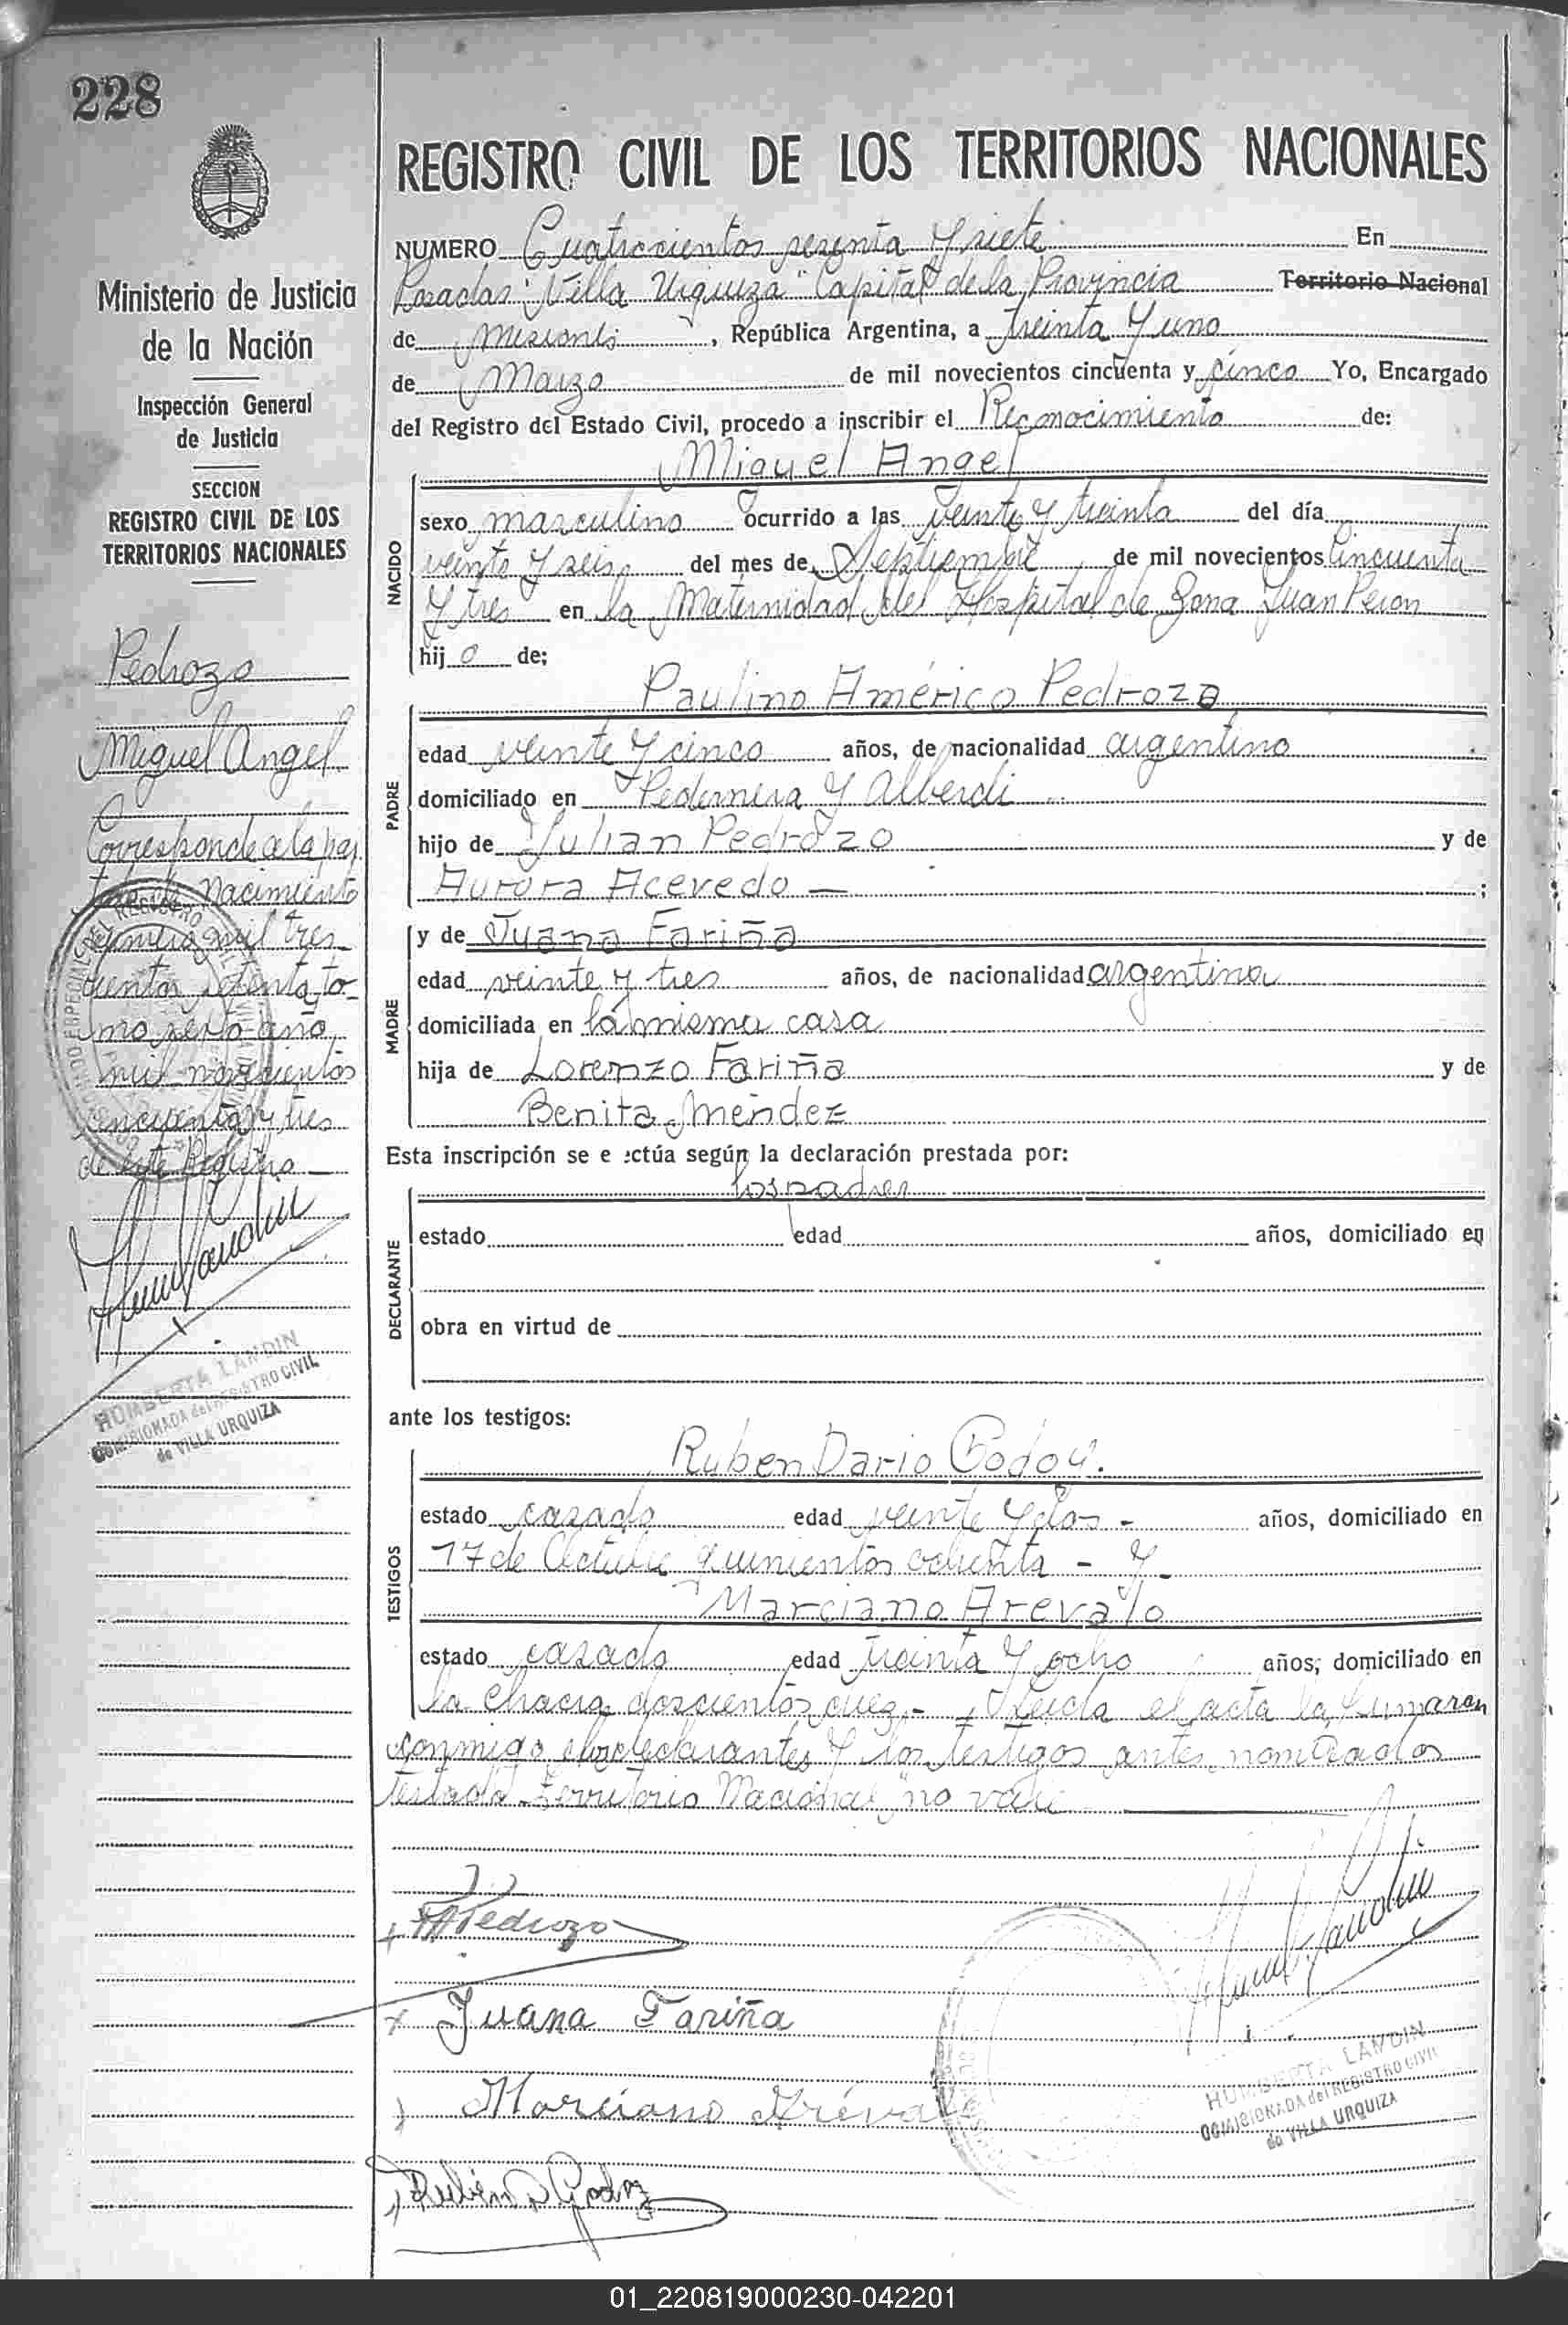 228
Ministerio de Justicia
de la Nación
Inspección General
de Justicia
SECCION
REGISTRO CIVIL DE LOS
TERRITORIOS NACIONALES
Pedrozo
Miguel Angel
Corresponde a la par
tida de Nacimiento
número mil tres
cientos setenta, to-
mo sexto año
mil novecientos
cincuenta y tres
de este Registro
HUMBERTA LANDIN
COMISIONADA del REGISTRO CIVIL
de VILLA URQUIZA
REGISTRO CIVIL DE LOS TERRITORIOS NACIONALES
NUMERO Cuatrocientos sesenta y siete En
Posadas "Villa Urquiza" Capital de la Provincia Territorio Nacional
de Misiones, República Argentina, a treinta y uno
de Marzo de mil novecientos cincuenta y cinco Yo, Encargado
del Registro del Estado Civil, procedo a inscribir el Reconocimiento de:
Miguel Angel
NACIDO
sexo masculino ocurrido a las veinte y treinta del día
veinte y seis del mes de Septiembre de mil novecientos cincuenta
y tres en la Maternidad del Hospital de Zona Juan Peron
hijo de;
Paulino Américo Pedroza
PADRE
edad veinte y cinco años, de nacionalidad argentino
domiciliado en Pedernera y Alberdi
hijo de Julian Pedrozo y de
Aurora Acevedo — ;
MADRE
y de Juana Fariña
edad veinte y tres años, de nacionalidad argentina
domiciliada en la misma casa
hija de Lorenzo Fariña y de
Benita Méndez
Esta inscripción se e ectúa según la declaración prestada por:
los padres
DECLARANTE
estado edad años, domiciliado en
obra en virtud de
ante los testigos:
Ruben Dario Godoy.
TESTIGOS
estado casado edad veinte y dos - años, domiciliado en
17 de Octubre quinientos ochenta - y
Marciano Arevalo
estado casado edad treinta y ocho años, domiciliado en
la chacra doscientos diez - Leida el acta la firmaron
conmigo los declarantes y los testigos antes nombrados
Testado Territorio Nacional "no vale
Pedrozo
Juana Fariña
Marciano Arévalo
Rubén D Godoy
HUMBERTA LANDIN
COMISIONADA del REGISTRO CIVIL
de VILLA URQUIZA
01_220819000230-042201